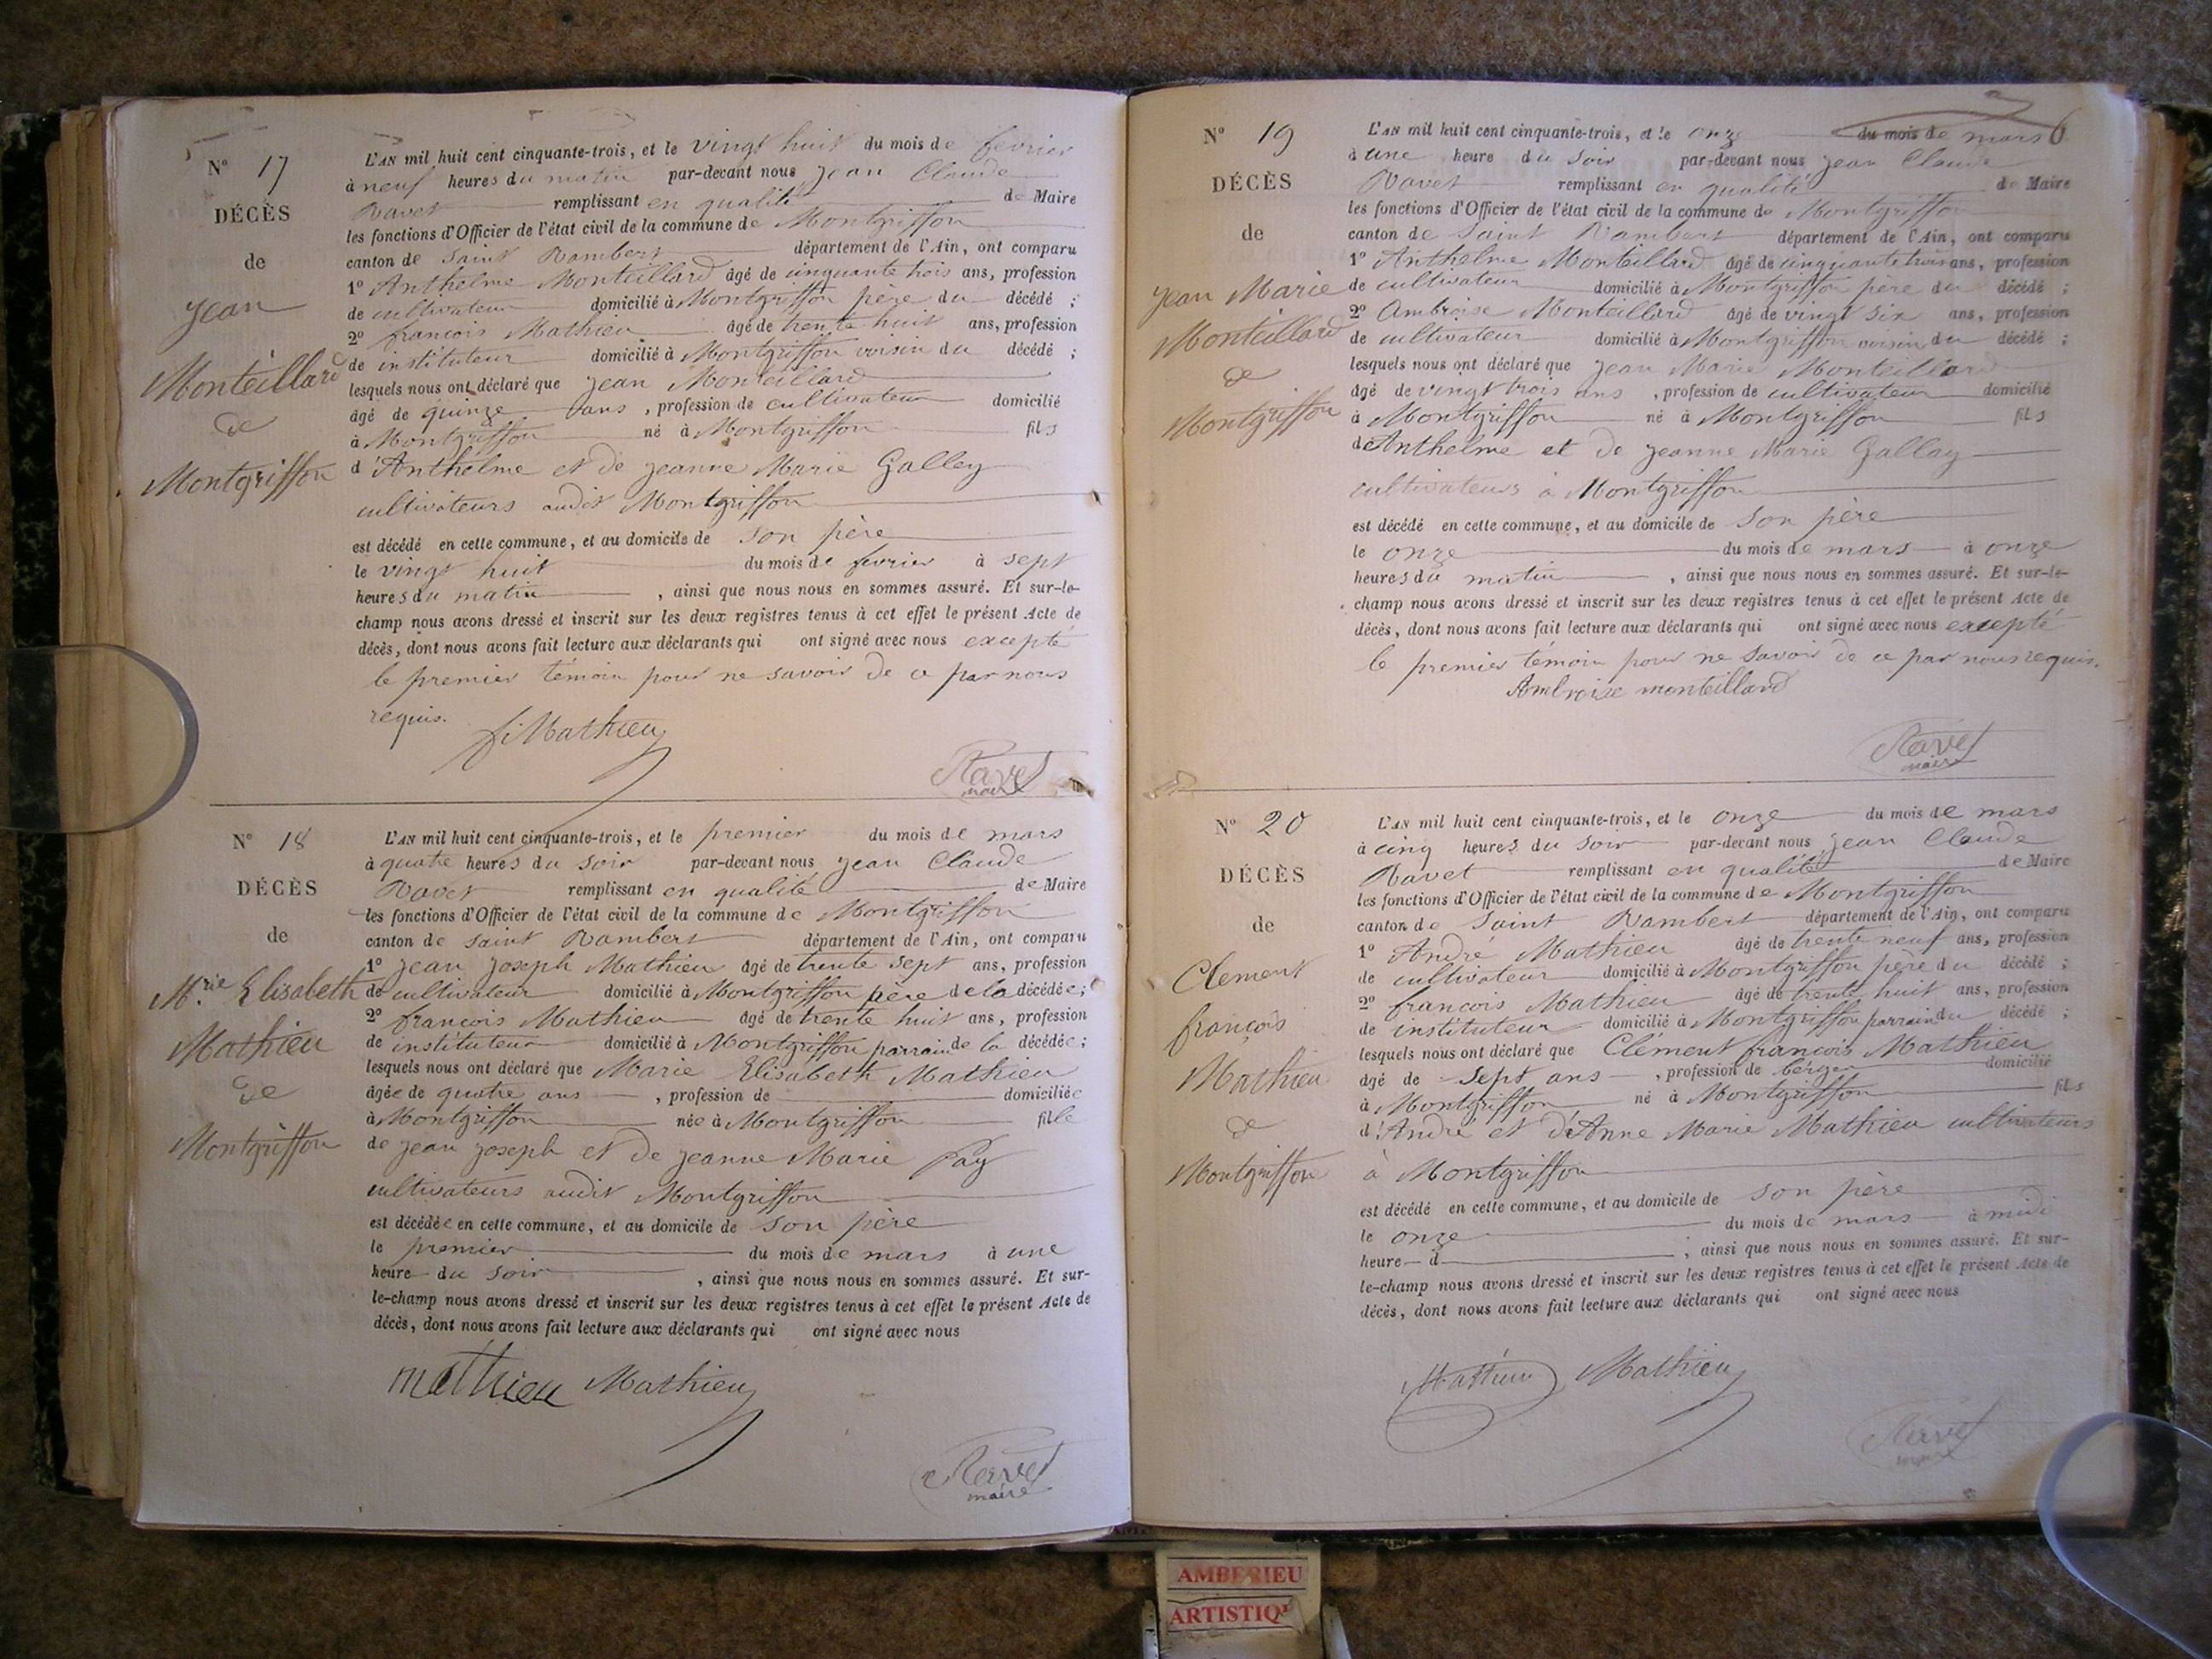 N° 17
DÉCÈS
de
Jean
Monteillard
de
Montgriffon
L'AN mil huit cent cinquante-trois, et le vingt huit du mois de fevrier
à neuf heures du matin par-devant nous Jean Claude
Ravet remplissant en qualité de Maire
les fonctions d'Officier de l'état civil de la commune de Montgriffon
canton de Saint Rambert département de l'Ain, ont comparu
1° Anthelme Monteillard âgé de cinquante trois ans, profession
de cultivateur domicilié à Montgriffon père du décédé ;
2° françois Mathieu âgé de trente huit ans, profession
de instituteur domicilié à Montgriffon voisin du décédé ;
lesquels nous ont déclaré que Jean Monteillard
âgé de quinze ans , profession de cultivateur domicilié
à Montgriffon né à Montgriffon fils
d'Anthelme et de Jeanne Marie Galley
cultivateurs audit Montgriffon
est décédé en cette commune, et au domicile de son père
le vingt huit du mois de fevrier à sept
heures du matin , ainsi que nous nous en sommes assuré. Et sur-le-
champ nous avons dressé et inscrit sur les deux registres tenus à cet effet le présent Acte de
décès, dont nous avons fait lecture aux déclarants qui ont signé avec nous excepté
le premier témoin pour ne savoir de ce par nous
requis.
f. Mathieu
Ravet
maire
N° 18
DÉCÈS
de
M.rie Elisabeth
Mathieu
de
Montgriffon
L'AN mil huit cent cinquante-trois, et le premier du mois de mars
à quatre heures du soir par-devant nous Jean Claude
Ravet remplissant en qualité de Maire
les fonctions d'Officier de l'état civil de la commune de Montgriffon
canton de Saint Rambert département de l'Ain, ont comparu
1° Jean Joseph Mathieu âgé de trente sept ans, profession
de cultivateur domicilié à Montgriffon père de la décédée;
2° françois Mathieu âgé de trente huit ans, profession
de instituteur domicilié à Montgriffon parrain de la décédée;
lesquels nous ont déclaré que Marie Elisabeth Mathieu
âgée de quatre ans , profession de domiciliée
à Montgriffon née à Montgriffon fille
de Jean Joseph et de Jeanne Marie Pay
cultivateurs audit Montgriffon
est décédée en cette commune, et au domicile de son père
le premier du mois de mars à une
heure du soir , ainsi que nous nous en sommes assuré. Et sur-
le-champ nous avons dressé et inscrit sur les deux registres tenus à cet effet le présent Acte de
décès, dont nous avons fait lecture aux déclarants qui ont signé avec nous
mathieu Mathieu
Ravet
maire
6
N° 19
DÉCÈS
de
Jean Marie
Monteillard
de
Montgriffon
L'AN mil huit cent cinquante-trois, et le onze du mois de mars
à une heure du soir par-devant nous Jean Claude
Ravet remplissant en qualité de Maire
les fonctions d'Officier de l'état civil de la commune de Montgriffon
canton de Saint Rambert département de l'Ain, ont comparu
1° Anthelme Monteillard âgé de cinquante trois ans, profession
de cultivateur domicilié à Montgriffon père du décédé ;
2° Ambroise Monteillard âgé de vingt six ans, profession
de cultivateur domicilié à Montgriffon voisin du décédé ;
lesquels nous ont déclaré que Jean Marie Monteillard
âgé de vingt trois ans , profession de cultivateur domicilié
à Montgriffon né à Montgriffon fils
d'Anthelme et de Jeanne Marie Gallay
cultivateurs à Montgriffon
est décédé en cette commune, et au domicile de son père
le onze du mois de mars à onze
heures du matin , ainsi que nous nous en sommes assuré. Et sur-le-
champ nous avons dressé et inscrit sur les deux registres tenus à cet effet le présent Acte de
décès, dont nous avons fait lecture aux déclarants qui ont signé avec nous excepté
le premier témoin pour ne savoir de ce par nous requis.
Ambroise monteillard
Ravet
maire
N° 20
DÉCÈS
de
Clement
françois
Mathieu
de
Montgriffon
L'AN mil huit cent cinquante-trois, et le onze du mois de mars
à cinq heures du soir par-devant nous Jean Claude
Ravet remplissant en qualité de Maire
les fonctions d'Officier de l'état civil de la commune de Montgriffon
canton de Saint Rambert département de l'Ain, ont comparu
1° André Mathieu âgé de trente neuf ans, profession
de cultivateur domicilié à Montgriffon père du décédé ;
2° françois Mathieu âgé de trente huit ans, profession
de instituteur domicilié à Montgriffon parrain du décédé ;
lesquels nous ont déclaré que Clément françois Mathieu
âgé de sept ans , profession de berger domicilié
à Montgriffon né à Montgriffon fils
d'André et d'Anne Marie Mathieu cultivateurs
à Montgriffon
est décédé en cette commune, et au domicile de son père
le onze du mois de mars à midi
heure d , ainsi que nous nous en sommes assuré. Et sur-
le-champ nous avons dressé et inscrit sur les deux registres tenus à cet effet le présent Acte de
décès, dont nous avons fait lecture aux déclarants qui ont signé avec nous
Mathieu Mathieu
Ravet
maire
AMBERIEU
ARTISTIQ